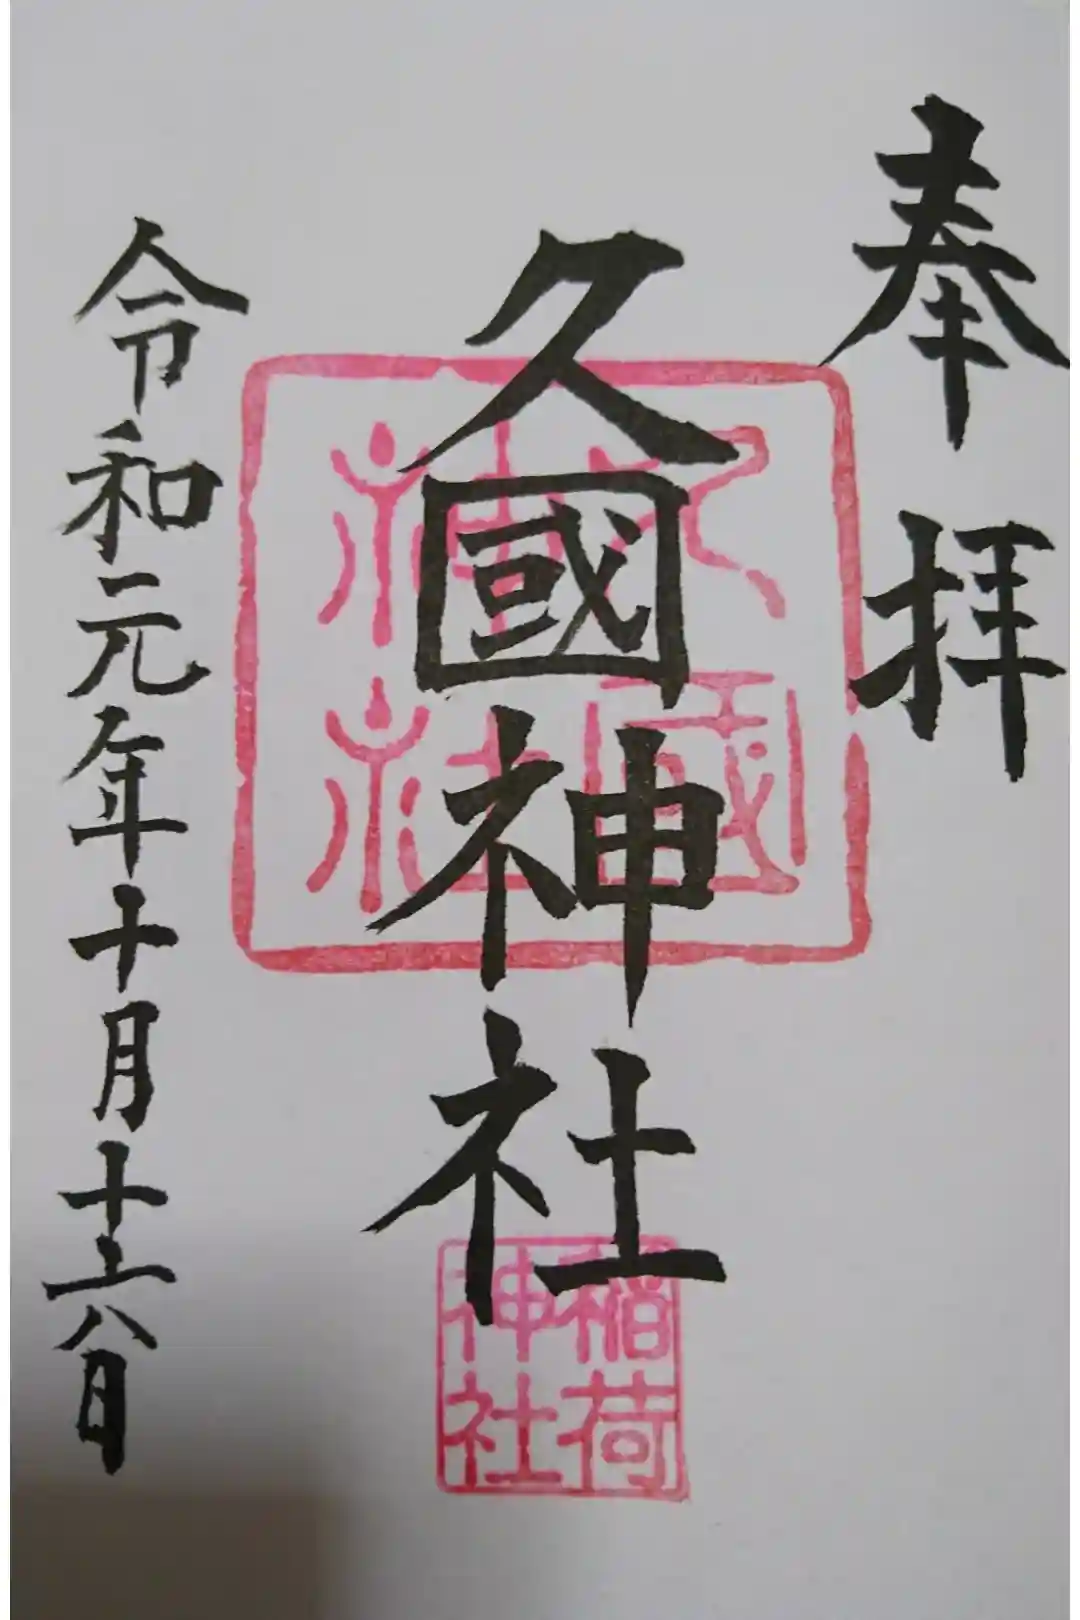 奉拝
久國神社
令和元年十月十六日
久國
神社
稲荷
神社